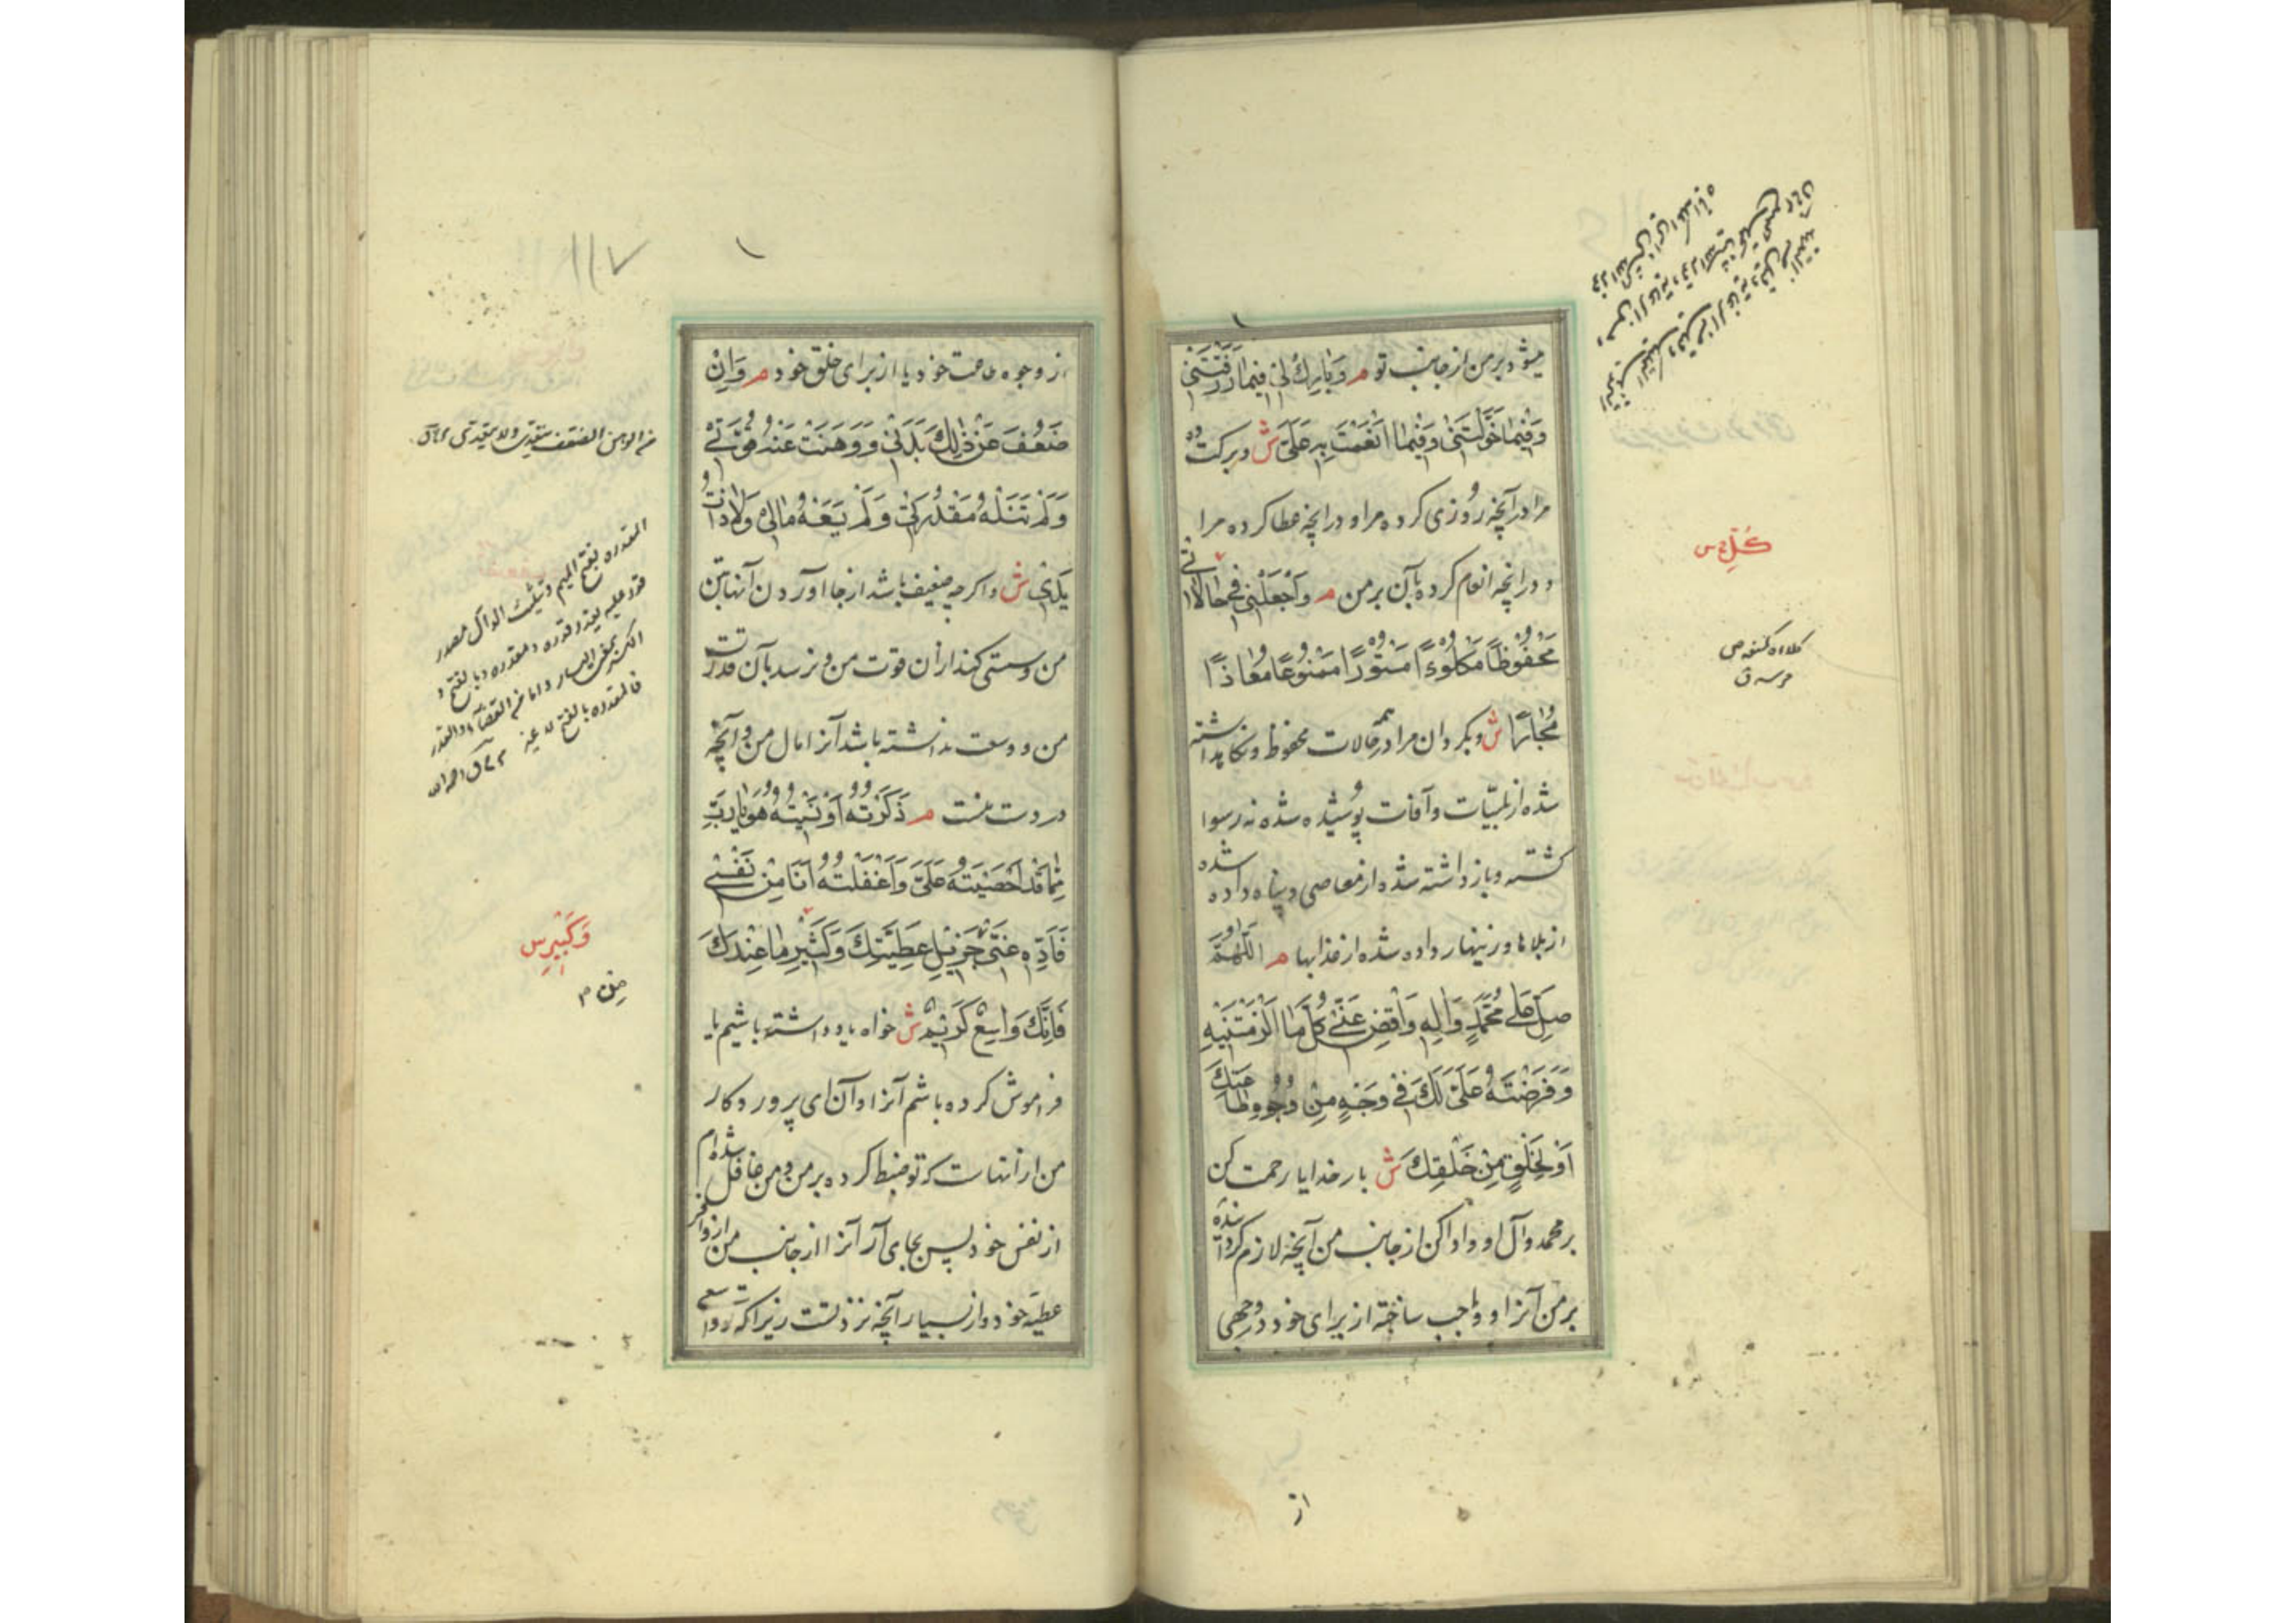 میشود بر من از جانب تو م وَبَارِكْ لِي فِيمَا رَزَقْتَنِي
وَفِيمَا خَوَّلْتَنِي وَفِيمَا أَنْعَمْتَ بِهِ عَلَيَّ ش و برکت ده
مرا در آنچه روزی کرده مرا و در آنچه عطا کرده مرا
و در آنچه انعام کرده بآن بر من م وَاجْعَلْنِي فِي حَالَاتِي
مَحْفُوظًا مَكْلُوءًا مَسْتُورًا مَمْنُوعًا مُعَاذًا
مُجَارًا ش و بکردان مرا در همه حالات محفوظ و نکاهداشته
شده از بلیّات و آفات پوشیده شده نه رسوا
کشته و بازداشته شده از معاصی و پناه داده شده
از بلاها و زینهار داده شده از عذابها م اللَّهُمَّ
صَلِّ عَلَى مُحَمَّدٍ وَآلِهِ وَاقْضِ عَنِّي كُلَّ مَا أَلْزَمْتَنِيهِ
وَفَرَضْتَهُ عَلَيَّ لَكَ فِي وَجْهٍ مِنْ وُجُوهِ طَاعَتِكَ
أَوْ لِخَلْقٍ مِنْ خَلْقِكَ ش بار خدایا رحمت کن
بر محمد و آل او و ادا کن از جانب من آنچه لازم کردانیده
بر من آنرا و واجب ساخته از برای خود در وجهی
از
كُلِّ س
کلاه کمنعه ص
حرسه ق
۱۱۷
از وجوه طاعت خود یا از برای خلق خود م وَإِنْ
ضَعُفَ عَنْ ذَلِكَ بَدَنِي وَوَهَنَتْ عَنْهُ قُوَّتِي
وَلَمْ تَنَلْهُ مَقْدُرَتِي وَلَمْ يَسَعْهُ مَالِي وَلَا ذَاتُ
يَدِي ش و اکر چه ضعیف باشد از جا آوردن آنها بتن
من و سستی کند از آن قوت من و نرسد بآن قدرت
من و وسعت نداشته باشد آنرا مال من و آنچه
در دست منست م ذَكَرْتُهُ أَوْ نَسِيتُهُ هُوَ يَا رَبِّ
مِمَّا قَدْ أَحْصَيْتَهُ عَلَيَّ وَأَغْفَلْتُهُ أَنَا مِنْ نَفْسِي
فَأَدِّهِ عَنِّي مِنْ جَزِيلِ عَطِيَّتِكَ وَكَثِيرِ مَا عِنْدَكَ
فَإِنَّكَ وَاسِعٌ كَرِيمٌ ش خواه یاد داشته باشیم یا
فراموش کرده باشم آنرا و آن ای پروردکار
من از آنهاست که تو ضبط کرده بر من و من غافل شده ام
از نفس خود پس بجای آر آنرا از جانب من از وافر
عطیه خود و از بسیار آنچه نزد تست زیرا که تو واسعی
المقدره بفتح المیم و تثلیث الدال مصدر
وَكَبِيرِ س
مِن م